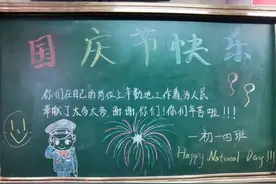 国庆节快乐
你们在自己的岗位上辛勤地工作着为人民
奉献了太多太多,谢谢你们!你们辛苦啦!!!
一初一四班
Happy National Day!!!